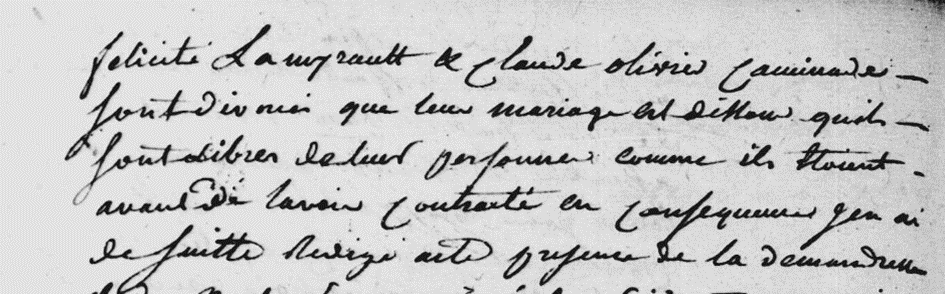 felicité Lamyrault & Claude olivier Caminade
sont divorcés que leur mariage est dissous quils
sont Libres de leurs personnes comme ils Etoient
avant de lavoir Contracté en Consequence jen ai
de suitte Redigé acte presence de la demandresse